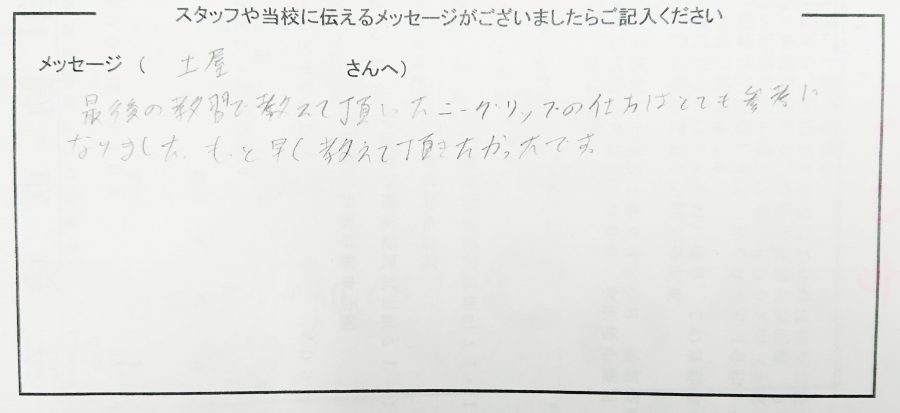 スタッフや当校に伝えるメッセージがございましたらご記入ください
メッセージ ( 土屋 さんへ)
最後の教習で教えて頂いたニーグリップの仕方はとても参考に
なりました。もっと早く教えて頂きたかったです。